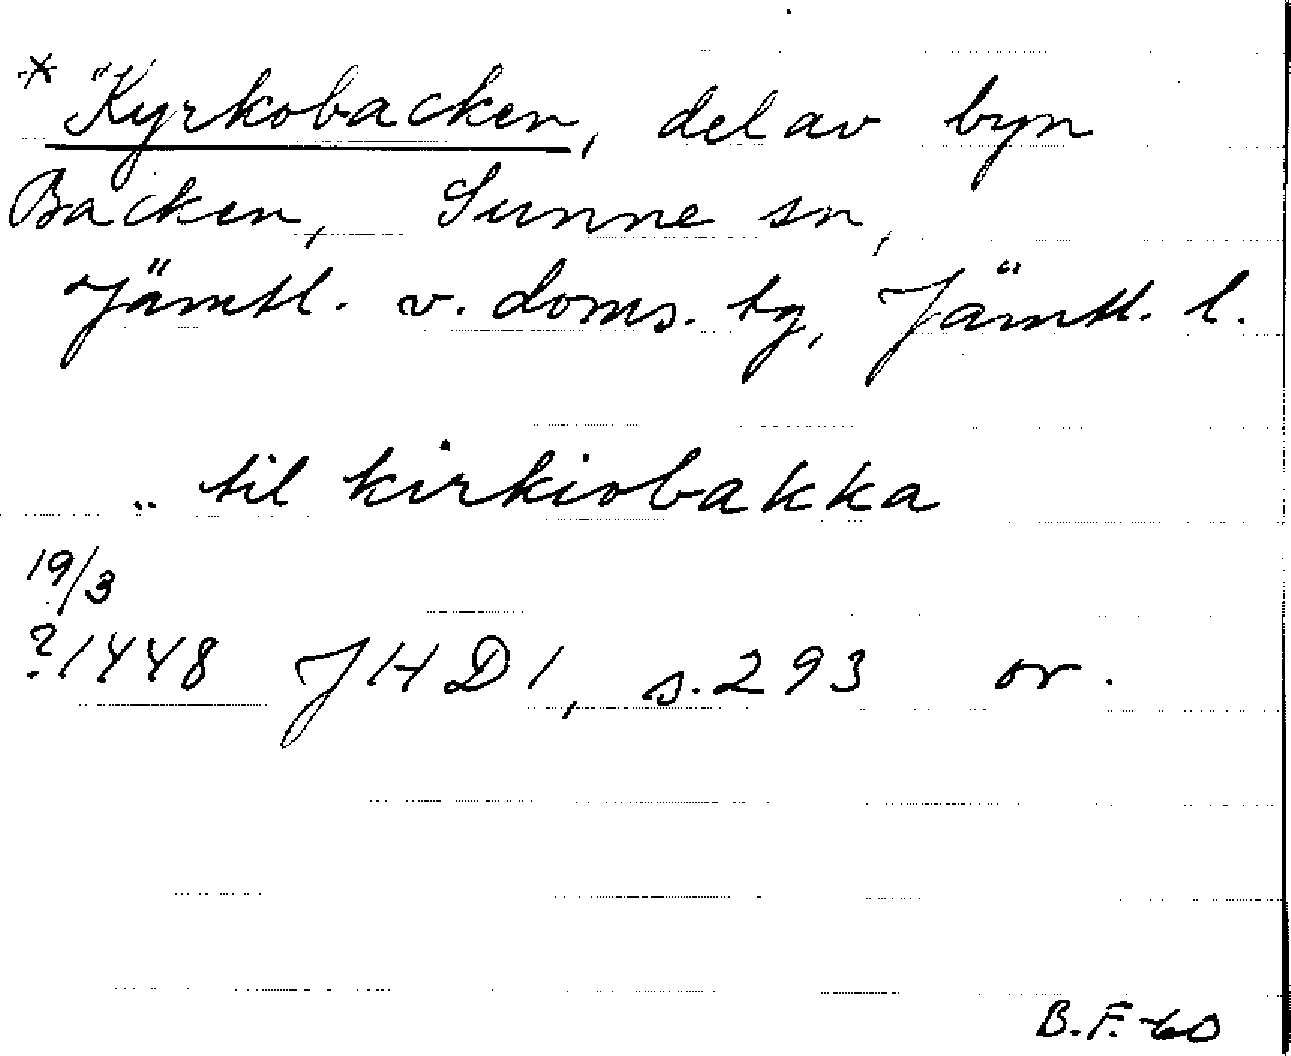 * "Kyrkobacken, del av byn
Backen, Sunne sn,
Jämtl. v. doms. tg, Jämtl. l.
.. til kirkiobakka
19/3
? 1448 JHD 1, s. 293 or.
B.F. -60